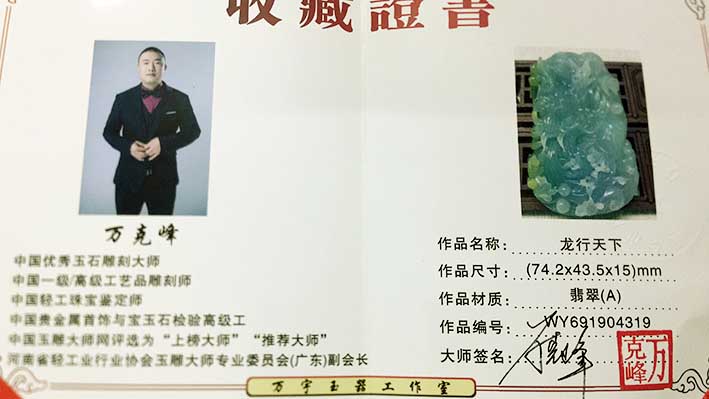 收藏證書
万克峰
中国优秀玉石雕刻大师
中国一级/高级工艺品雕刻师
中国轻工珠宝鉴定师
中国贵金属首饰与宝玉石检验高级工
中国玉雕大师网评选为“上榜大师”“推荐大师”
河南省轻工业行业协会玉雕大师专业委员会(广东)副会长
作品名称: 龙行天下
作品尺寸: (74.2x43.5x15)mm
作品材质: 翡翠(A)
作品编号: WY691904319
大师签名: 万克峰
万克峰
万宇玉器工作室